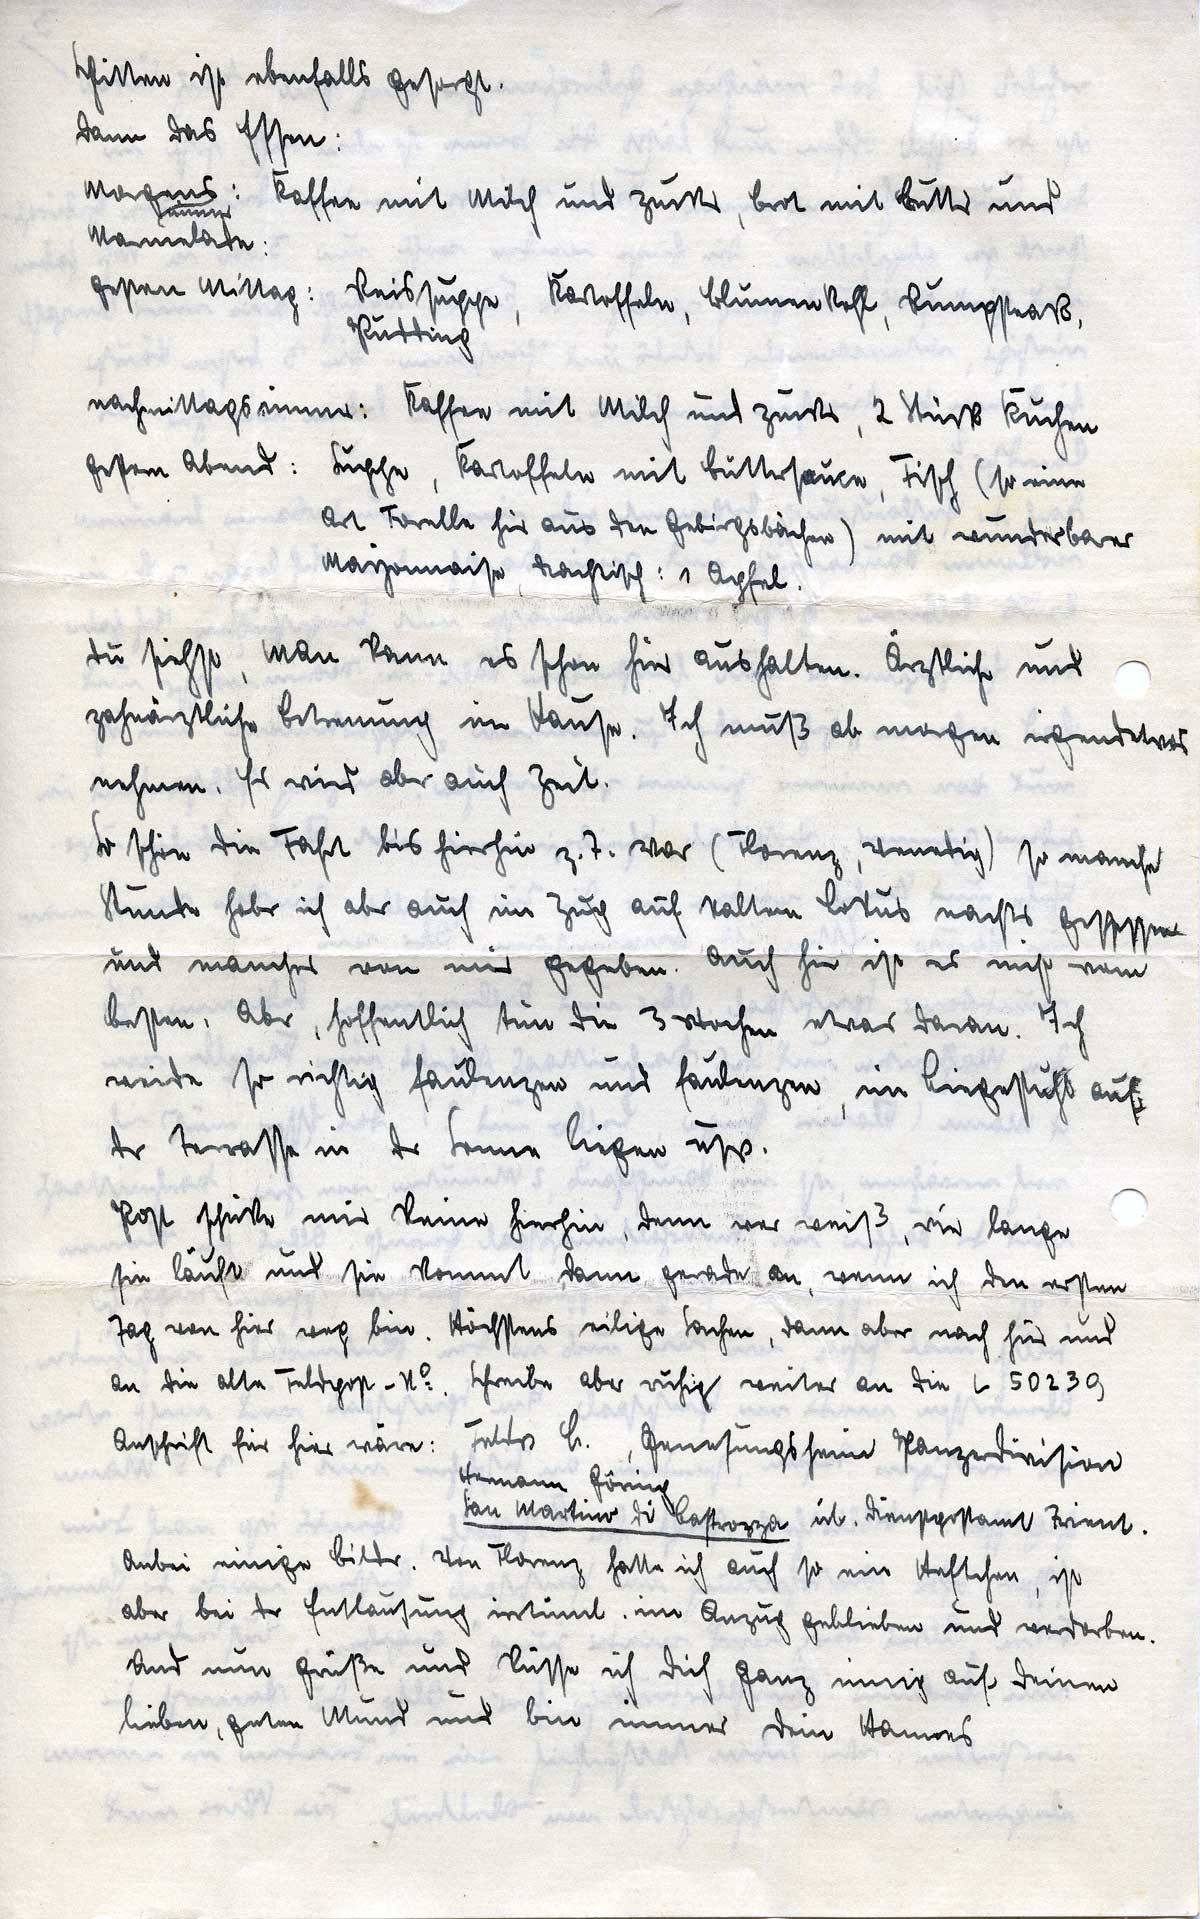 Schitten ist ebenfalls gesorgt.
Dann das Essen:
Morgens: Kaffee mit Milch und Zucker, Brot mit Butter und
immer
Marmelade:
gestern Mittag: Reissuppe, Kartoffeln, Blumenkohl, Rumpsteak,
Pudding
nachmittags immer: Kaffee mit Milch und Zucker, 2 Stück Kuchen
gestern Abend: Suppe, Kartoffeln mit Buttersauce, Fisch (so eine
Art Forelle hir aus den Gebirgsbächen) mit wunderbarer
Mayonnaise, Nachtisch: 1 Apfel.
Du siehst, man kann es schon hier aushalten. Ärztliche und
zahnärztliche Betreuung im Hause. Ich muß ab morgen irgendetwas
nehmen. Es wird aber auch Zeit.
So schön die Fahrt bis hierhin z.T. war (Florenz, Venedig) so manche
Stunde habe ich aber auch im Zug auf kaltem Lokus nachts gesessen
und manches von mir gegeben. Auch hier ist es nicht vom
besten. Aber, hoffentlich tun die 3 Wochen etwas daran. Ich
werde so richtig faulenzen und faulenzen, im Liegestuhl auf
der Terrasse in der Sonne liegen usw.
Post schicke mir keine hierhin, denn wer weiß, wie lange
sie läuft und sie kommt dann gerade an, wenn ich den ersten
Tag von hier weg bin. Höchstens eilige Sachen, dann aber nach hier und
an die alte Feldpost-No. Schreibe aber ruhig weiter an die L 50239
Anschrift für hier wäre: Feldw H., Genesungsheim Panzerdivision
Hermann Göring
San Martino di Castrozza üb. Dienstpostamt Trient.
Anbei einige Bilder. Von Florenz hatte ich auch so ein Heftchen, ist
aber bei der Entlausung irrtüml. im Anzug geblieben und verdorben.
Und nun grüße und küsse ich Dich ganz innig auf Deinen
lieben, guten Mund und bin immer Dein Hannes